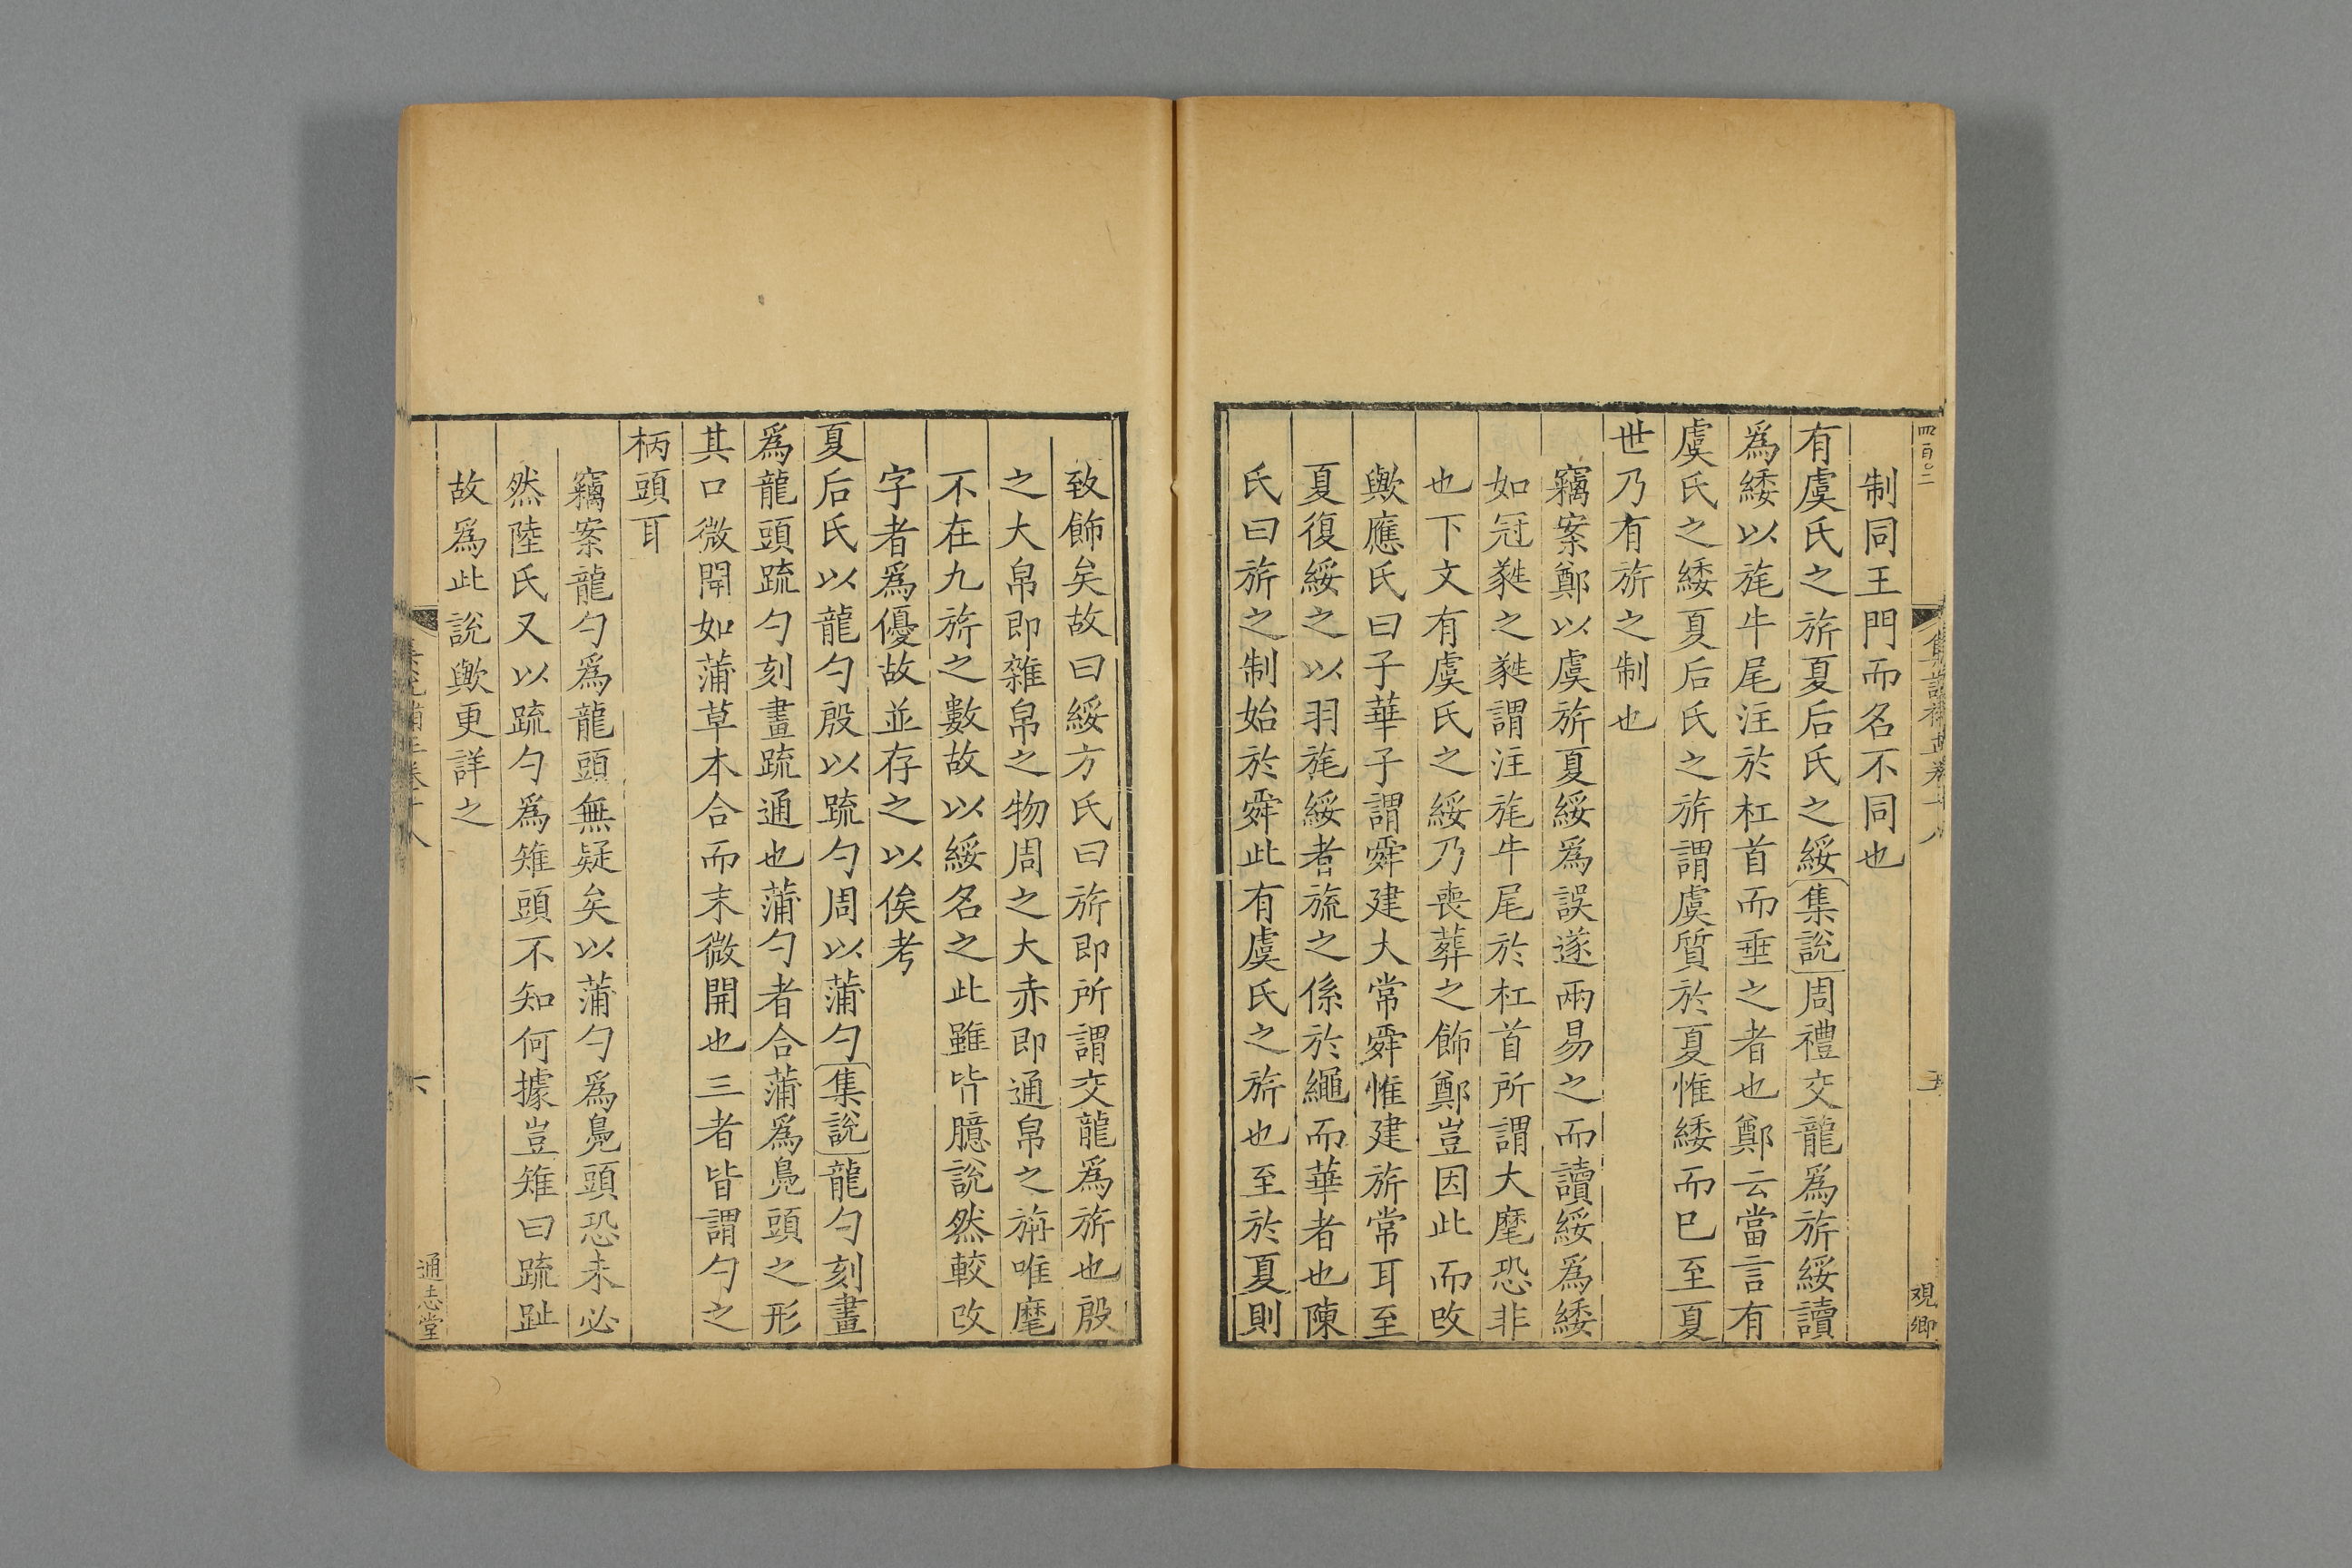 制同王門而名不同也
有虞氏之旂夏后氏之綏集說周禮交龍爲旂綏讀
爲緌以旄牛尾注於杠首而垂之者也鄭云當言有
虞氏之緌夏后氏之旂謂虞質於夏惟緌而已至夏
世乃有旂之制也
竊案鄭以虞旂夏綏爲誤遂兩易之而讀綏爲緌
如冠蕤之蕤謂注旄牛尾於杠首所謂大麾恐非
也下文有虞氏之綏乃喪葬之飾鄭豈因此而改
歟應氏曰子華子謂舜建大常舜惟建旂常耳至
夏復綏之以羽旄綏者旒之係於繩而華者也陳
氏曰旂之制始於舜此有虞氏之旂也至於夏則
致飾矣故曰綏方氏曰旂即所謂交龍爲旂也殷
之大帛即雜帛之物周之大赤即通帛之旃唯麾
不在九旂之數故以綏名之此雖皆臆說然較改
字者爲優故並存之以俟考
夏后氏以龍勺殷以疏勺周以蒲勺集說龍勺刻畫
爲龍頭疏勺刻畫疏通也蒲勺者合蒲爲鳧頭之形
其口微開如蒲草本合而末微開也三者皆謂勺之
柄頭耳
竊案龍勺爲龍頭無疑矣以蒲勺爲鳧頭恐未必
然陸氏又以疏勺爲雉頭不知何據豈雉曰疏趾
故爲此說歟更詳之
四百二
集說補正卷十八
五
觀卿
六
通志堂